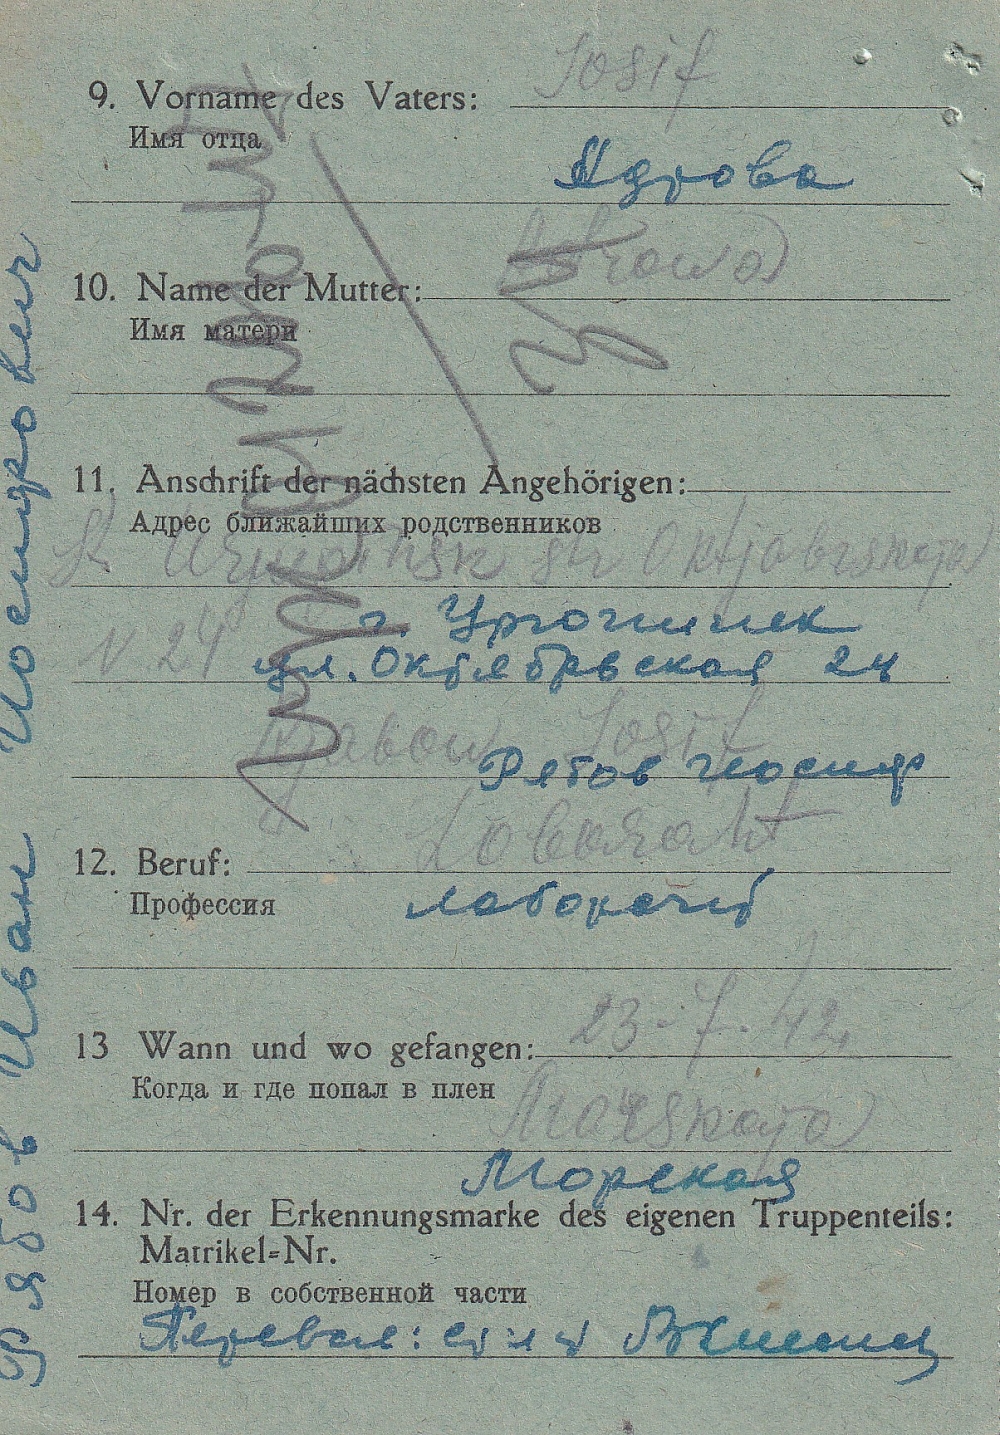 9. Vorname des Vaters: Iosif
Имя отца
Ядрова
10. Name der Mutter:
Имя матери
11. Anschrift der nächsten Angehörigen:
Адрес ближайших родственников
Oktjabrskaja
N 24
г.
ул. Октябрьская 24
Rjabow Iosif
Рябов Иосиф
12. Beruf: Laborant
Профессия
лаборант
13 Wann und wo gefangen: 23-7-42
Когда и где попал в плен
Morskaja
Морская
14. Nr. der Erkennungsmarke des eigenen Truppenteils:
Matrikel=Nr.
Номер в собственной части
Перевел:
Рябов Иван Иосифович